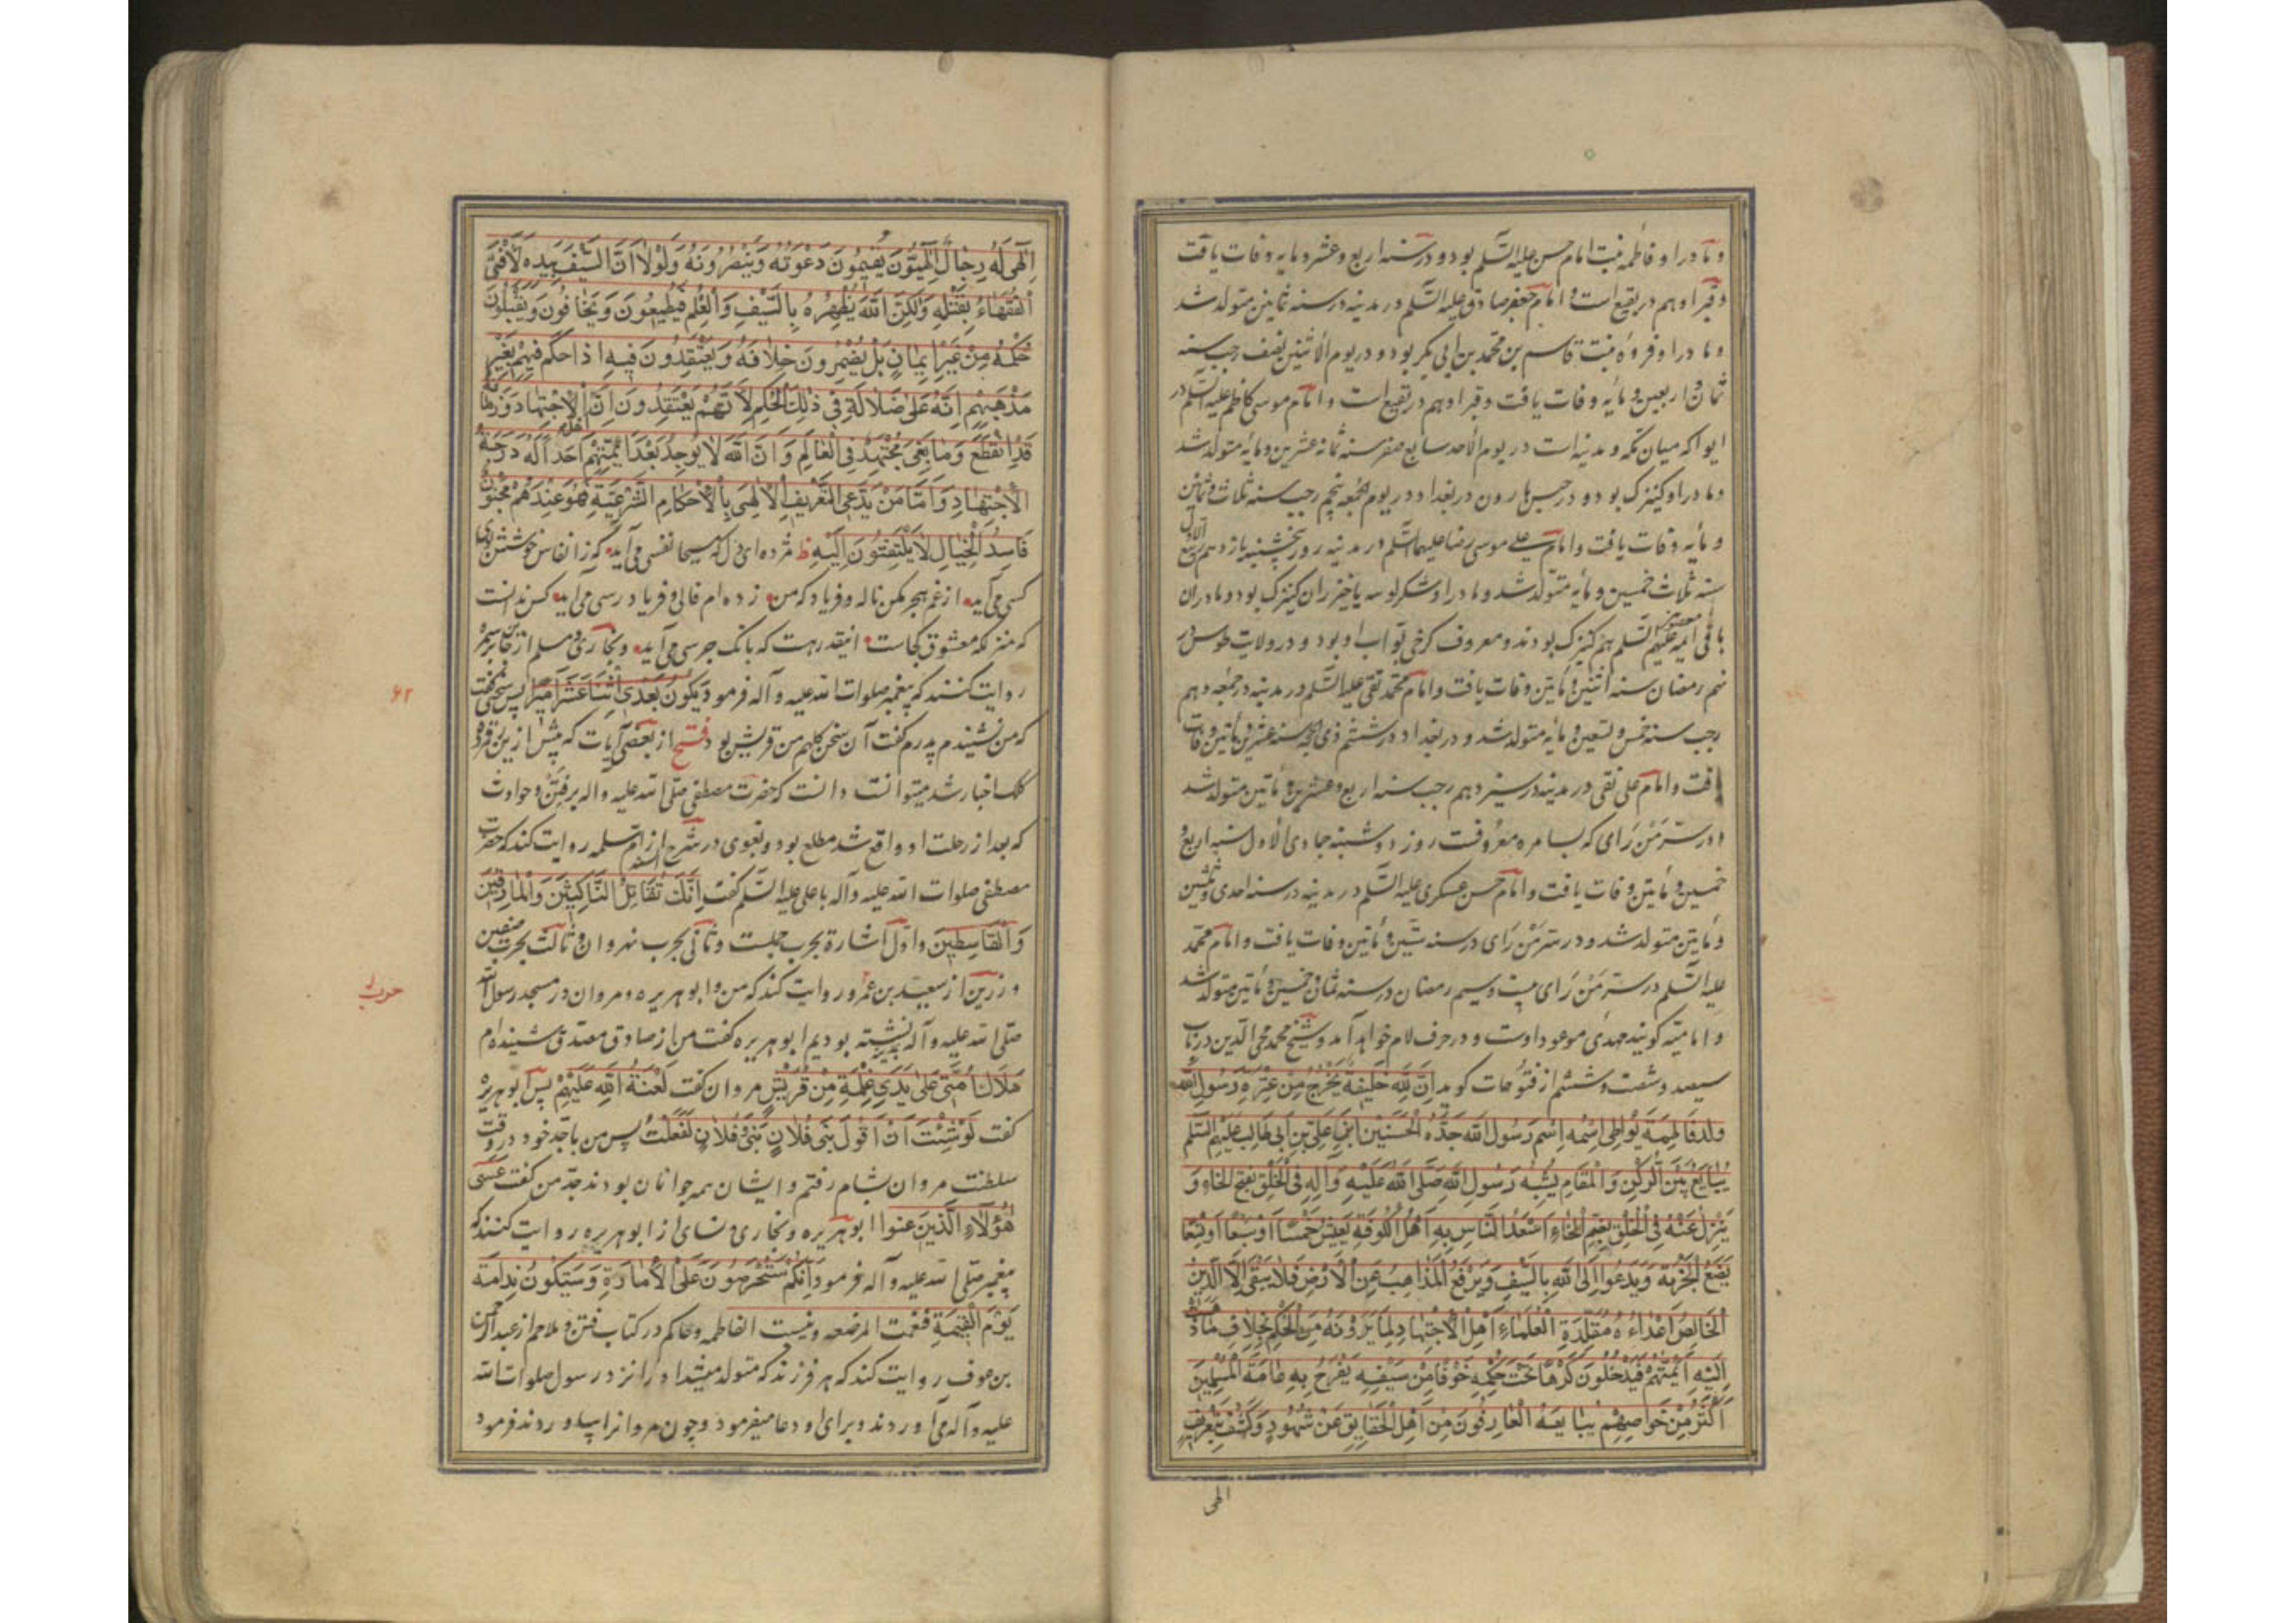 و مادر او فاطمه بنت امام حسن علیه السّلم بود و در سنه اربع و عشر و مایه وفات یافت
و قبر او هم در بقیع است و امام جعفر صادق علیه السّلم در مدینه در سنه ثمانین متولد شد
و مادر او فروه بنت قاسم بن محمد بن ابی بکر بود و در یوم الاثنین نصف رجب سنه
ثمان و اربعین و مأیه وفات یافت و قبر او هم در بقیع است و امام موسی کاظم علیه السّلم در
ابوا که میان مکه و مدینه است در یوم الاحد سابع صفر سنه ثمانه عشرین و مأیه متولد شد
و مادر او کنیزک بود و در حبس هارون در بغداد در یوم الجمعه پنجم رجب سنه ثلاث و ثمانین
و مأیه وفات یافت و امام علی موسی رضا علیهما السّلم در مدینه روز پنجشنبه یازدهم ربیع الاول
سنه ثلاث خمسین و مأیه متولد شد و مادر او شکر لوسه یا خیزران کنیزک بود و مادران
باقی ایمه معصومین علیهم السّلم هم کنیزک بودند و معروف کرخی بوّاب او بود و در ولایت طوس در
نهم رمضان سنه اثنین و مأتین وفات یافت و امام محمد تقی علیه السّلم در مدینه در جمعه دهم
رجب سنه خمس و تسعین و مأیه متولد شد و در بغداد در ششم ذی الحجه سنه عشرین و مأتین وفات
یافت و امام علی نقی در مدینه در سیزدهم رجب سنه اربع و عشرین و مأتین متولد شد
و در سُرَّ مَنْ رَای که بسامره معروفست روز دوشنبه جمادی الاول سنه اربع
خمسین و مأتین وفات یافت و امام حسن عسکری علیه السّلم در مدینه در سنه احدی و ثلثین
و مأیتین متولد شد و در سُرَّ مَنْ رَای در سنه ستین و مأتین وفات یافت و امام محمّد
علیه السّلم در سُرَّ مَنْ رَای بیست و سیم رمضان در سنه ثمان و خمسین و مأتین متولد شد
و امامیّه کویند مهدئ موعود اوست و در حرف لام خواهد آمد و شیخ محمد محی الدین در باب
سیصد و شصت و ششم از فتوحات کوید اِنَّ لِلّهِ خَلِیفَةً یَخْرُجُ مِنْ عِتْرَةِ رَسُولِ اللّه
ولدِ فَاطِمَةَ یُواطِی اِسْمُهُ اِسْمَ رَسُولِ اللّه جَدُّهُ الْحُسَیْنِ ابْنِ عَلِیّ بْنِ اَبِی طَالِبْ عَلَیْهِمُ السَّلم
یُبَایَعُ بَیْنَ الرُّکْنِ وَ الْمَقَامِ یُشْبِهُ رَسُولَ اللّهِ صَلَّی اللّهُ عَلَیْهِ وَ آلِهِ فِی الْخَلْقِ بِفَتْحِ الْخَاءِ وَ
یَنْزِلُ عَنْهُ فِی الْخُلْقِ بِضَمِّ الْخَاءِ اَسْعَدُ النَّاسِ بِهِ اَهْلُ الْکُوفَةِ یَعِیْشُ خَمْسًا اَوْ سَبْعًا اَوْ تِسْعًا
یَضَعُ الْجِزْیَةَ وَ یَدْعُوا اِلَی اللّهِ بِالسَّیْفِ وَ یَرْفَعُ الْمَذَاهِبَ عَنِ الْاَرْضِ فَلَا یَبْقَی اِلَّا الدِّینُ
الْخَالِصُ اَعْدَاءُهُ مُقَلِّدَةُ الْعُلَمَاءِ اَهْلِ الْاِجْتِهَادِ لِمَا یَرَوْنَهُ مِنَ الْحُکْمِ بِخِلَافِ مَا ذَهَبَتْ
اِلَیْهِ اَئِمَّتُهُمْ فَیَدْخُلُونَ کَرْهًا تَحْتَ حُکْمِهِ خَوْفًا مِنْ سَیْفِهِ یَفْرَحُ بِهِ عَامَّةُ الْمُسْلِمِینَ
اَکْثَرُ مِنْ خَوَاصِّهِمْ یُبَایِعَهُ الْعَارِفُونَ مِنْ اَهْلِ الْحَقَایِقِ عَنْ شُهُودٍ وَ کَشْفٍ بِتَعْرِیفٍ
الهی
اِلَهِی لَهُ رِجَالٌ اِلَهِیُّونَ یُقِیْمُونَ دَعْوَتَهُ وَ یَنْصُرُونَهُ وَ لَوْلَا اَنَّ السَّیْفَ بِیَدِهِ لَاَفْتَی
الْفُقَهَاءُ بِقَتْلِهِ وَ لَکِنَّ اللّهَ یُظْهِرُهُ بِالسَّیْفِ وَ الْعِلْمِ فَیُطِیعُونَ وَ یَخَافُونَ وَ یَقْبَلُونَ
حُکْمَهُ مِنْ غَیْرِ اِیمَانٍ بَلْ یُضْمِرُونَ خِلَافَهُ وَ یَعْتَقِدُونَ فِیهِ اِذَا حَکَمَ فِیهِمْ بِغَیْرِ
مَذْهَبِهِمْ اَنَّهُ عَلَی ضَلَالَةٍ فِی ذَلِکَ الْحُکْمِ لِاَنَّهُمْ یَعْتَقِدُونَ اَنَّ اَهْلَ الْاِجْتِهَادِ وَ زَمَانَهُ
قَدِ انْقَطَعَ وَ مَا بَقِیَ مُجْتَهِدٌ فِی الْعَالَمِ وَ اَنَّ اللّهَ لَا یُوجِدُ بَعْدَ اَئِمَّتِهِمْ اَحَدًا لَهُ دَرَجَةُ
الْاِجْتِهَادِ وَ اَمَّا مَنْ یَدَّعِی التَّعْرِیفِ الْاِلَهِیَّ بِالْاَحْکَامِ الشَّرْعِیَّةِ فَهُوَ عِنْدَهُمْ مَجْنُونٌ
فَاسِدُ الْخِیَالِ لَا یَلْتَفِتُونَ اِلَیْهِ ظ مژده ای دل که مسیحا نفسی می آید که ز انفاس خوشش بوی
کسی می آید از غم هجر مکن ناله و فریاد که من زده ام فالی و فریاد رسی می آید کس ندانست
که منزلکه معشوق کجاست اینقدر هست که بانک جرسی می آید و بخاری و مسلم از جابر بن سمره
روایت کنند که پیغمبر صلوات الله علیه و آله فرمود یَکُونُ بَعْدِی اِثْنَا عَشَرَ اَمِیرًا پس سخنی گفت
که من نشنیدم پدرم کفت آن سخن کلهم من قریش بود فتح از بعضی آیات که پیش از این مذکور
کلک اخبار شد میتوانست دانست که حضرت مصطفی صلّی الله علیه و آله بر فتن و حوادث
که بعد از رحلت او واقع شد مطلع بود و بغوی در شرح السنه از ام سلمه روایت کند که حضرت
مصطفی صلوات الله علیه و آله با علی علیه السّلم کفت اِنَّکَ تُقَاتِلُ النَّاکِثِینَ وَ الْمَارِقِینَ
وَ الْقَاسِطِینَ و اوّل اشارة بحرب جملست و ثانی بحرب نهروان و ثالث بحرب صفین
و رزین از سعید بن عمرو روایت کند که من و ابو هریره و مروان در مسجد رسول الله
صلّی الله علیه و آله نشسته بودیم ابو هریره کفت من از صادق مصدق شنیده ام
هَلَاکُ اُمَّتِی عَلَی یَدَیْ غِلْمَةٍ مِنْ قُرَیْشٍ مروان کفت لَعْنَةُ اللّهِ عَلَیْهِمْ پس ابو هریره
کفت لَوْ شِئْتُ اَنْ اَقُولَ بَنِی فُلَانٍ بَنِی فُلَانٍ لَفَعَلْتُ پس من با جدّ خود در وقت
سلطنت مروان بشام رفتم و ایشان همه جوانان بودند جدّ من کفت عَسَی
هَؤُلَاءِ الَّذِینَ عنوا ابو هریره و بخاری و نسای از ابو هریره روایت کنند که
پیغمبر صلّی الله علیه و آله فرمود اِنَّکُمْ سَتَحْرِصُونَ عَلَی الْاِمَارَةِ وَ سَتَکُونُ نِدَامَةً
یَوْمَ الْقِیَمَةِ فَنِعْمَتِ المرضعه و بئست الفاطمه و حاکم در کتاب فتن و ملاحم از عبدالرحمن
بن عوف روایت کند که هر فرزند که متولد میشد او را نزد رسول صلوات الله
علیه و آله می آوردند و برای او دعا میفرمود و چون مروانرا بیاوردند فرمود
۶۲